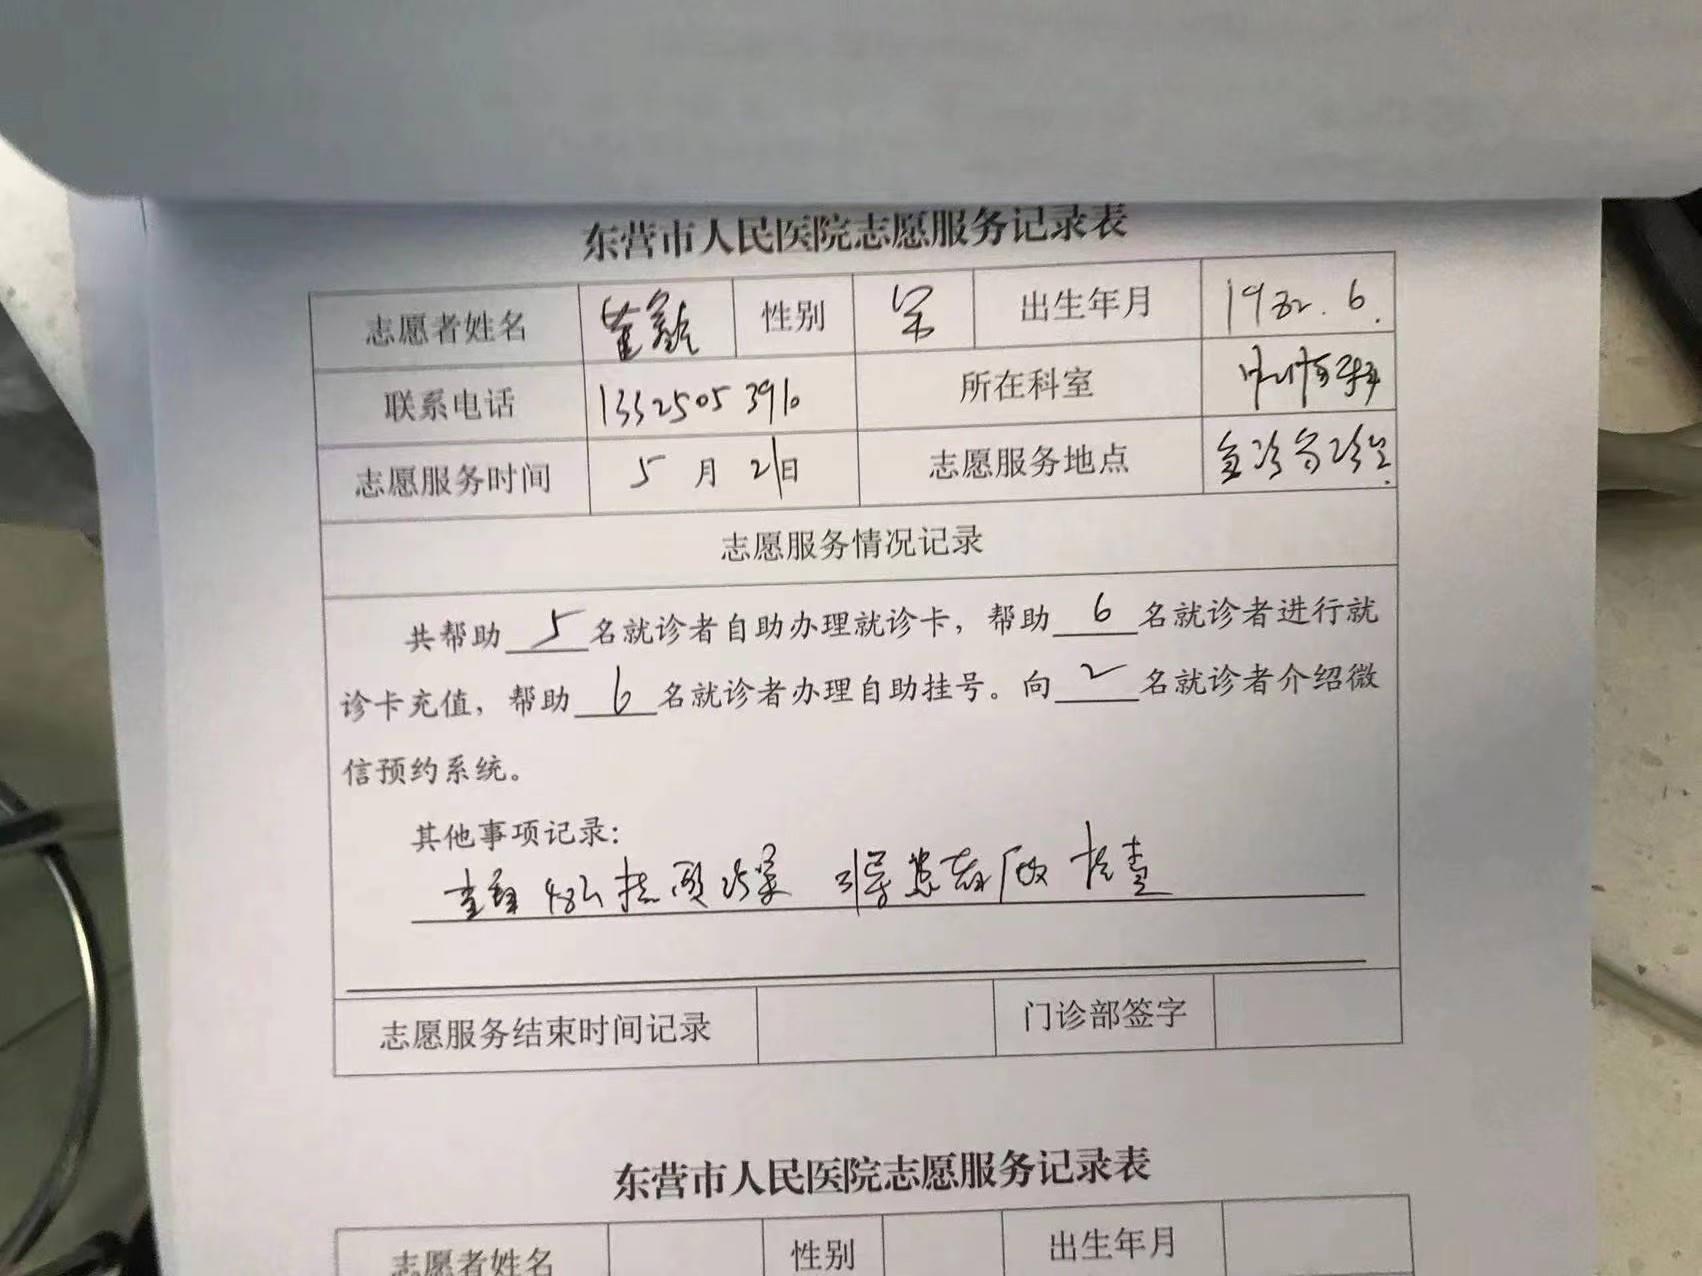 东营市人民医院志愿服务记录表
志愿者姓名 董 性别 出生年月 1982.6.
联系电话 13325053910 所在科室
志愿服务时间 5月21日 志愿服务地点
志愿服务情况记录
共帮助 5 名就诊者自助办理就诊卡，帮助 6 名就诊者进行就
诊卡充值，帮助 6 名就诊者办理自助挂号。向 2 名就诊者介绍微
信预约系统。
其他事项记录：
查看48h核酸结果 引导患者做检查
志愿服务结束时间记录 门诊部签字
东营市人民医院志愿服务记录表
志愿者姓名 性别 出生年月